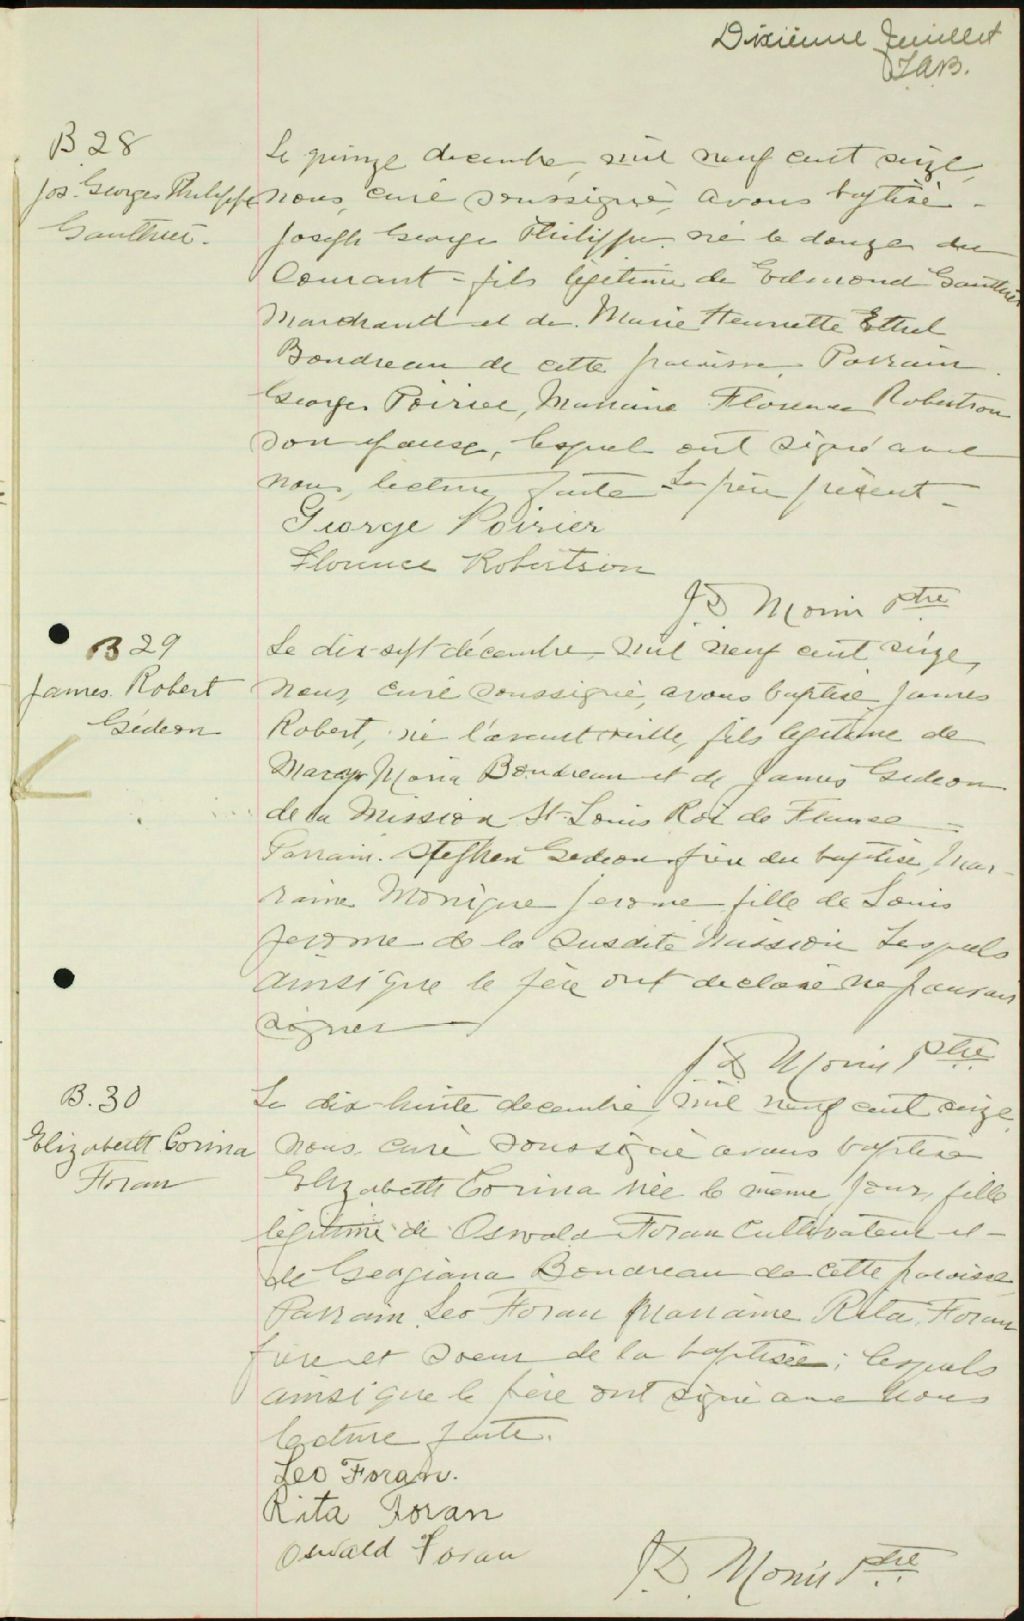 Dixième feuillet
J.A.B.
B 28
Jos. Georges Philippe
Gauthier.
Le quinze decembre, mil neuf cent seize,
nous, curé soussigné, avons baptisé -
Joseph George Philippe né le douze du
Courant - fils légitime de Edmond Gauthier
Marchand et de Marie Henriette Ethel
Boudreau de cette paroisse. Parrain
Georges Poirier, Marraine Florence Robertson
son epouse, lesquels ont signé avec
nous, lecture faite - Le père présent -
George Poirier
Florence Robertson
J D Morin Ptre
B 29
James Robert
Gédéon
Le dix-sept décembre, mil neuf cent seize,
nous, curé soussigné, avons baptisé James
Robert, né l'avant veille, fils legitime de
Mary Maria Boudreau et de James Gedeon
de la Mission St-Louis Roi de France -
Parrain. Stephen Gedeon frère du baptisé, Mar-
raine Monique Jerome fille de Louis
Jerome de la susdite Mission Lesquels
ainsi que le père ont declaré ne pouvoir
signer
J D Morin Ptre
B. 30
Elizabeth Corina
Foran
Le dix-huite decembre, mil neuf cent seize
nous, curé soussigné avons baptisé
Elizabeth Corina née le même jour, fille
légitime de Oswald Foran Cultivateur et -
de Georgiana Boudreau de cette paroisse
Parrain Leo Foran Marraine Rita Foran
frère et soeur de la baptisée; lesquels
ainsi que le père ont signé avec nous
lecture faite.
Leo Foran.
Rita Foran
Oswald Foran
J.D. Morin Ptre